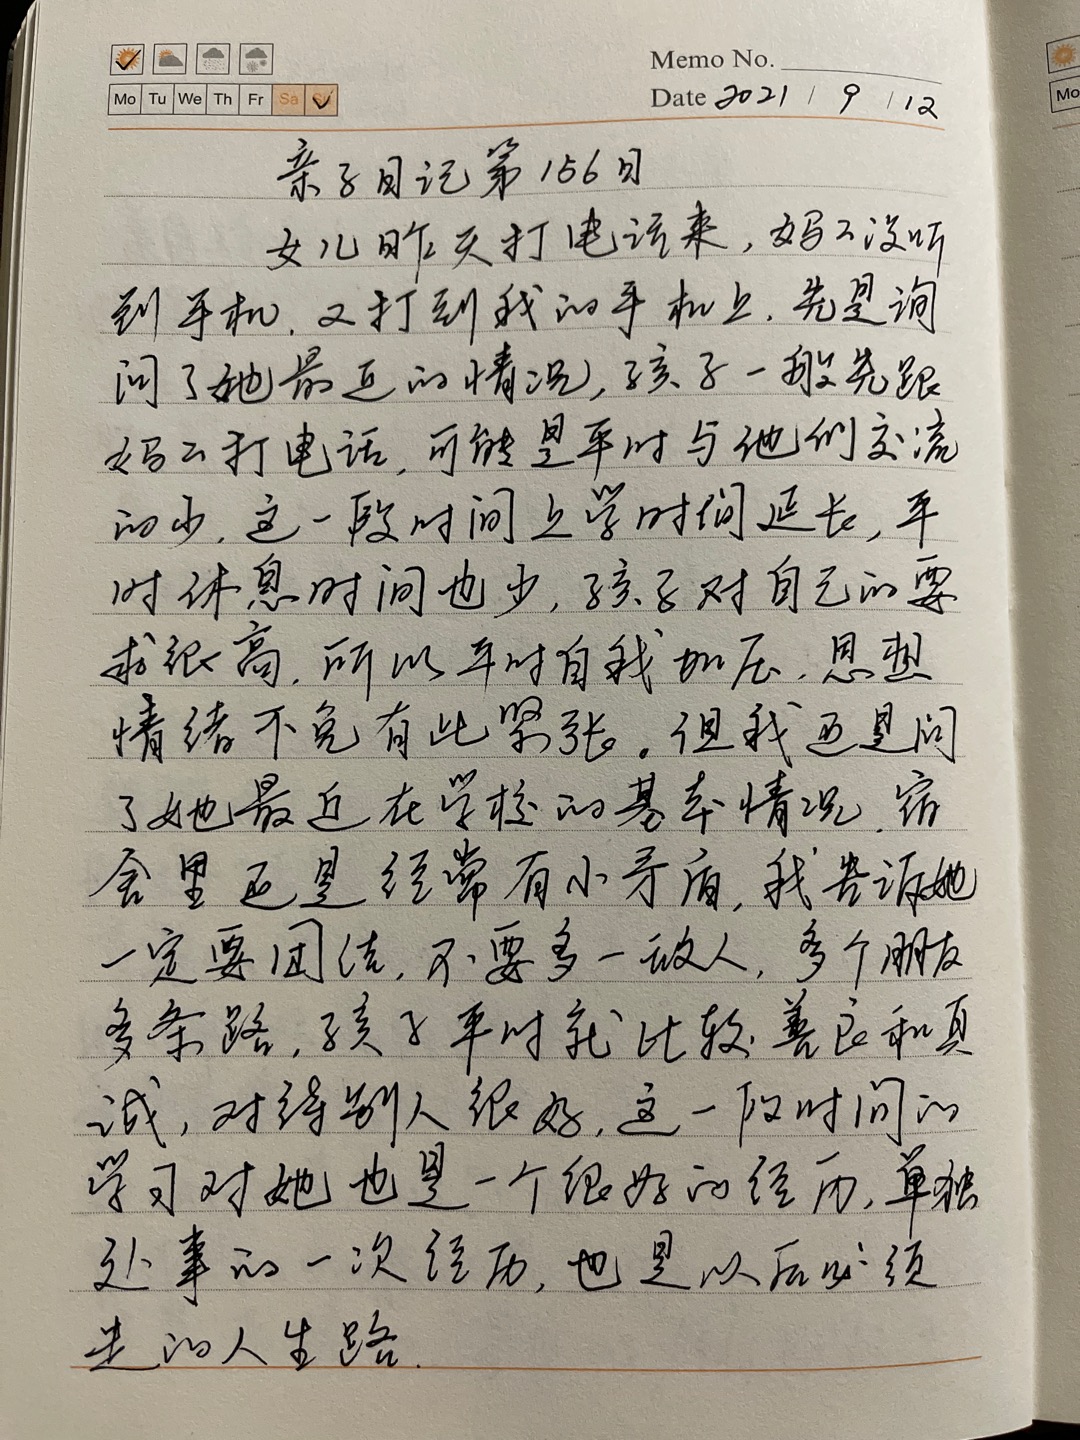 Memo No.
Mo Tu We Th Fr Sa
Date 2021 / 9 / 12
亲子日记第156日
女儿昨天打电话来，妈々没听
到手机，又打到我的手机上，先是询
问了她最近的情况，孩子一般先跟
妈々打电话，可能是平时与他们交流
的少，这一段时间上学时间延长，平
时休息时间也少，孩子对自己的要
求很高，所以平时自我加压，思想
情绪不免有些紧张。但我还是问
了她最近在学校的基本情况，宿
舍里还是经常有小矛盾，我告诉她
一定要团结，不要多一敌人，多个朋友
多条路，孩子平时就比较善良和真
诚，对待别人很好，这一段时间的
学习对她也是一个很好的经历，单独
处事的一次经历，也是以后必须
走的人生路.
Mo